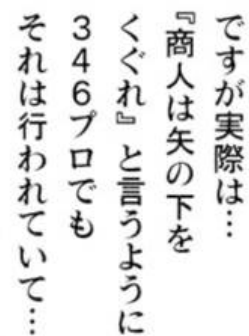 ですが実際は…
『商人は矢の下を
くぐれ』と言うように
３４６プロでも
それは行われていて…